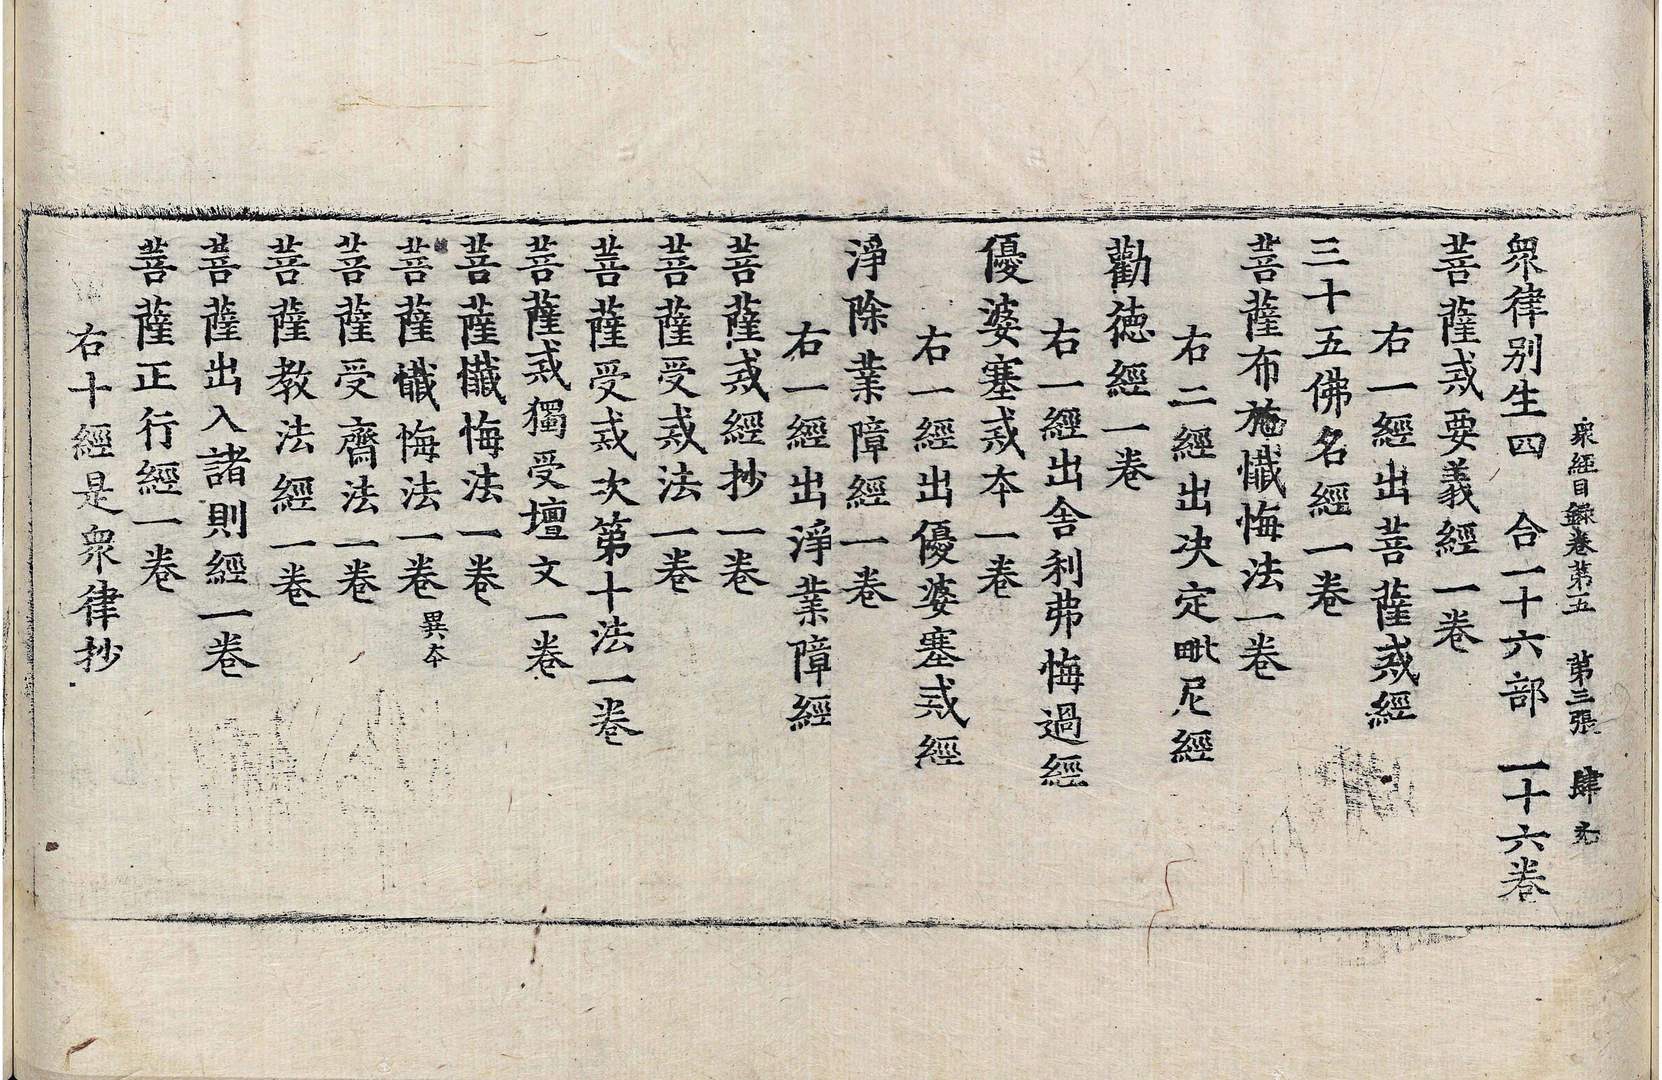 衆經目錄卷第五　第三張　肆
衆律别生四　合一十六部　一十六卷
菩薩戒要義經一卷
右一經出菩薩戒經
三十五佛名經一卷
菩薩布施懺悔法一卷
右二經出决定毗尼經
勸德經一卷
右一經出舍利弗悔過經
優婆塞戒本一卷
右一經出優婆塞戒經
淨除業障經一卷
右一經出淨業障經
菩薩戒經抄一卷
菩薩受戒法一卷
菩薩受戒次第十法一卷
菩薩戒獨受壇文一卷
菩薩懺悔法一卷
菩薩懺悔法一卷異本
菩薩受齋法一卷
菩薩教法經一卷
菩薩出入諸則經一卷
菩薩正行經一卷
右十經是衆律抄